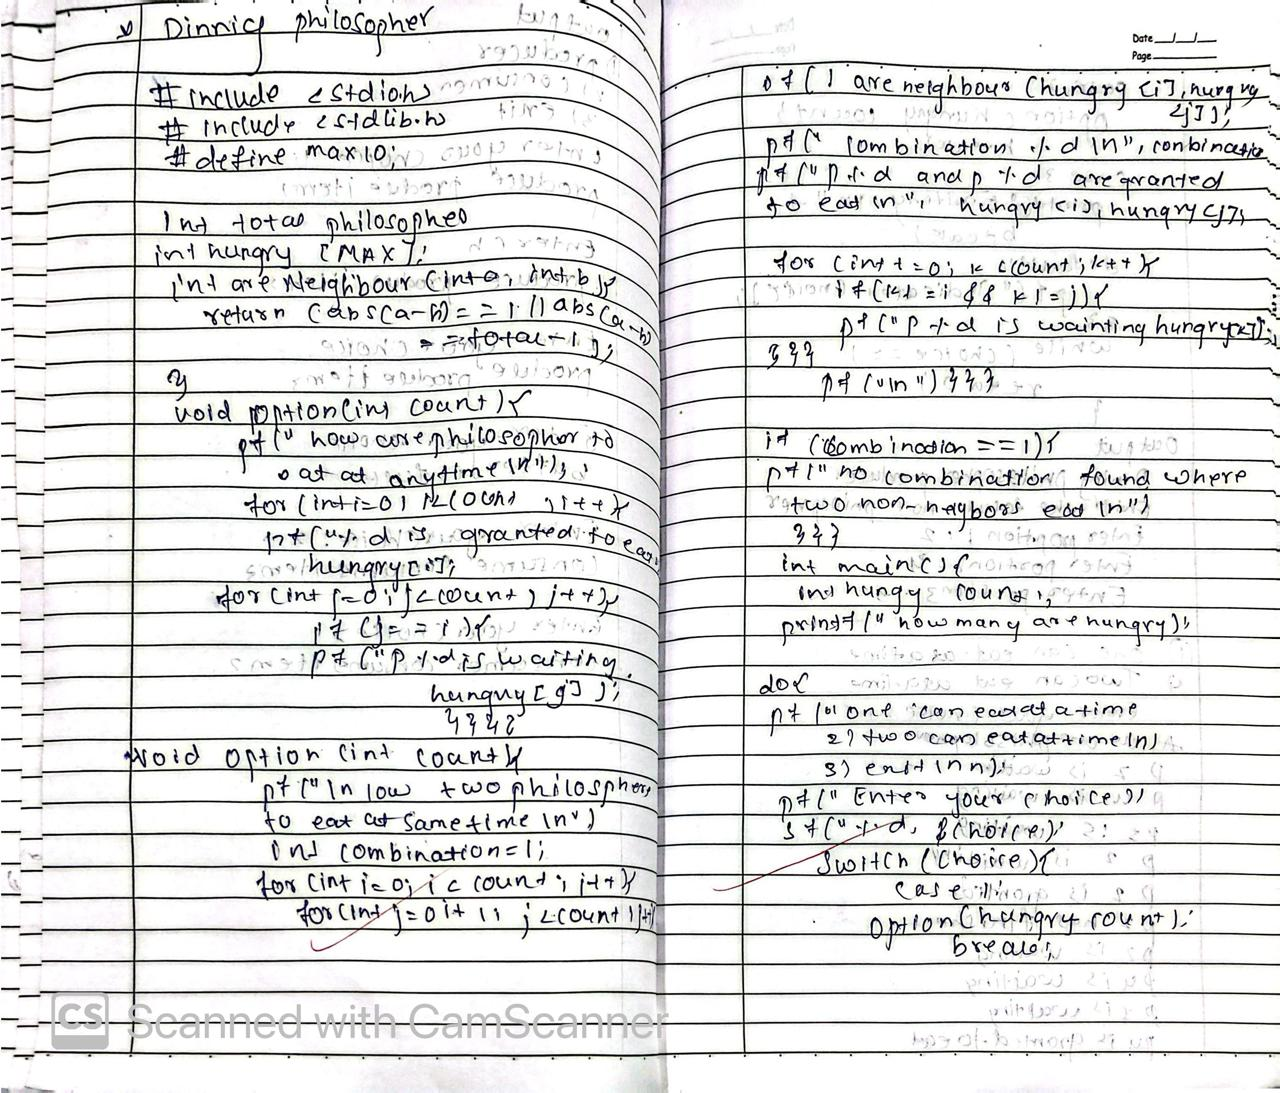 Dinnig philosopher
# include <stdio.h>
# include <stdlib.h>
# define max 10;
Int total philosopheo
int hungry [MAX];
int are Neighbour (int a, int b){
return (abs(a-b) == 1 || abs(a-b)
== total - 1 );
}
void option(int count){
pf(" how are philosopher to
eat at anytime \n");
for (int i=0; i<count ; i++){
pf("%d is granted to eat,
hungry[i];
for (int j=0; j<count ; j++){
if (j == i){
pf ("P %d is waiting.
hungry[j] );
}}}}
void option (int count){
pf ("\n low two philosphers
to eat at same time \n")
int combination=1;
for (int i=0; i < count; i++){
for (int j=0 i+1; j<count; j++)
if ( ! are neighbour (hungry [i], hungry
[j]);
pf (" combination %d \n", conbination
pf ("P %d and p %d are granted
to eat \n", hungry [i], hungry [j];
for (int t=0; k < count ; k++){
if (k! = i && k! = j){
pf ("P %d is wainting hungry[k]);
}}}
pf ("\n") }}}
if (combination == 1){
pf (" no combination found where
two non-neighbors eat \n")
}}}
int main(){
int hungy count ;
printf (" how many are hungry);
do{
pf (" 1 one can eat at a time
2) two can eat at time \n)
3) exit \n n);
pf (" Enter your choice:)
sf("%d, &choice);
Switch (choice){
case 1:
option (hungry count);
break;
Date
Page
CS Scanned with CamScanner